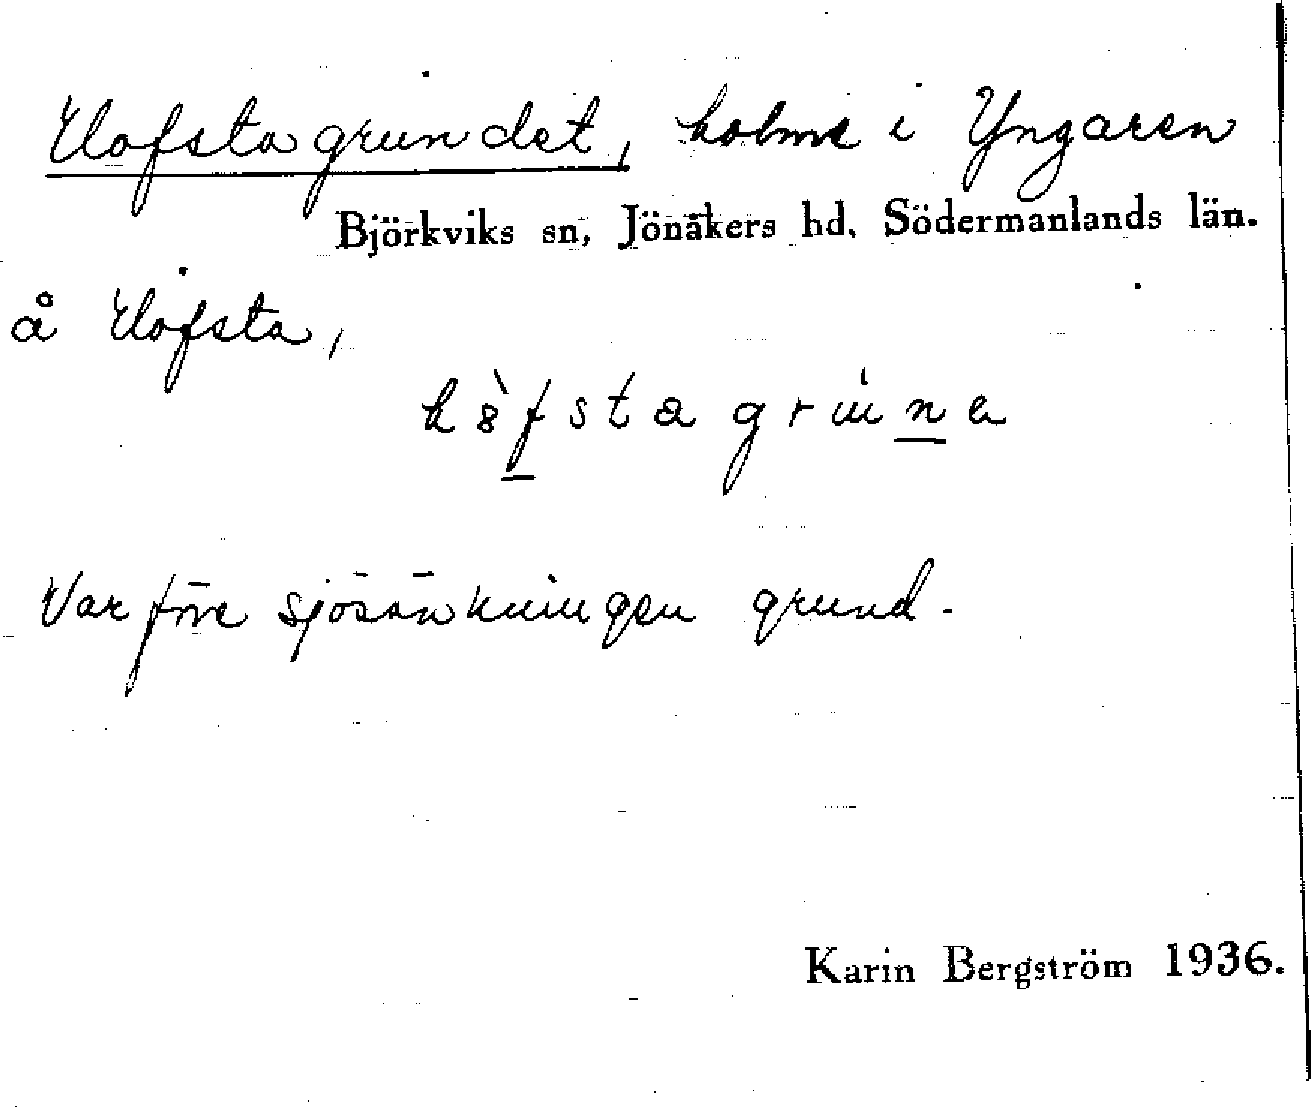 Hofsta grundet, holme i Yngaren
Björkviks sn, Jönåkers hd, Södermanlands län.
å Hofsta,
Var före sjösänkningen grund.
Karin Bergström 1936.